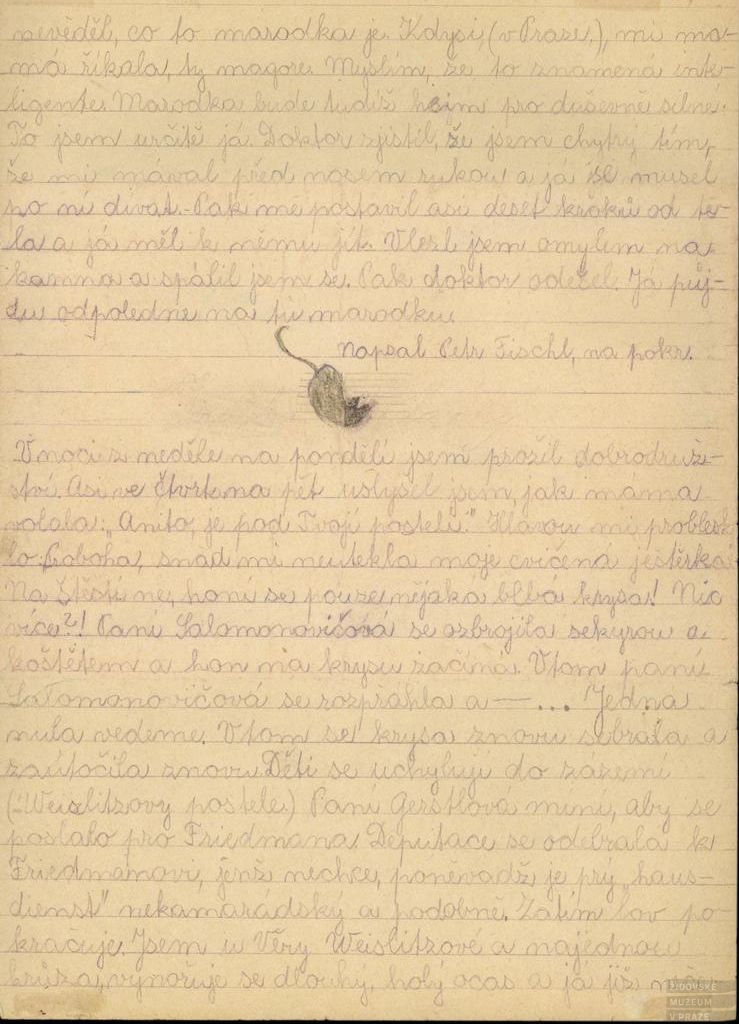 nevěděl, co to marodka je. Kdysi, (v Praze,), mi ma-
má říkala, ty magore. Myslím, že to znamená inte-
ligente. Marodka bude tudíž hejm pro duševně silné.
To jsem určitě já. Doktor zjistil, že jsem chytrý tím,
že mi mával před nosem rukou a já se musel
po ní dívat. Pak mě postavil asi deset kroků od tě-
la a já měl k němu jít. Vlezl jsem omylem na
kamna a spálil jsem se. Pak doktor odešel. Já půj-
du odpoledne na tu marodku.
Napsal Petr Fischl, na pokr.
V noci z neděle na pondělí jsem prožil dobrodruž-
ství. Asi ve čtvrt na pět uslyšel jsem, jak máma
volala: „Anito, je pod Tvojí postelí." Hlavou mi problesk-
lo: Proboha, snad mi neutekla moje cvičená ještěrka.
Na štěstí ne, honí se pouze nějaká blbá krysa! Nic
více?! Paní Salomonovičová se ozbrojila sekyrou a
koštětem a hon na krysu začíná. Vtom paní
Salomanovičová se rozpřáhla a — ... Jedna
nula vedeme. Vtom se krysa znovu sebrala a
zaútočila znovu. Děti se uchylují do zázemí
(:Weislitzovy postele.) Paní Gerstlová míní, aby se
poslalo pro Friedmana. Deputace se odebrala k
Friedmanovi, jenž nechce, poněvadž je prý „haus-
dienst" nekamarádský a podobně. Zatím lov po-
kračuje. Jsem u Věry Weislitzové a najednou
hrůza, vynořuje se dlouhý, holý ocas a já již
ŽIDOVSKÉ
MUZEUM
V PRAZE